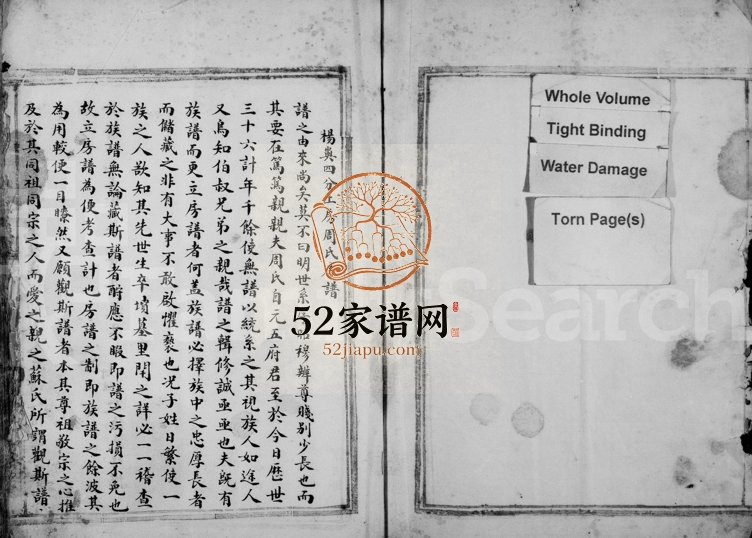 楊奧四分上房周氏 譜
譜之由來尚矣莫不曰明世系 昭穆辨尊賤别少長也而
其要在篤篤親親夫周氏自元五府君至於今日歷世
三十六計年千餘使無譜以統系之其視族人如途人
又烏知伯叔兄弟之親哉譜之輯修誠亟亟也夫既有
族譜而更立房譜者何盖族譜必擇族中之忠厚長者
而儲藏之非有大事不敢啟懼褻也况子姓日繁使一
族之人欲知其先世生卒墳墓里閈之詳必一一稽查
於族譜無論藏斯譜者酧應不暇即譜之污損不免也
故立房譜為便考查計也房譜之制即族譜之餘波其
為用較便一目瞭然又願觀斯譜者本其尊祖敬宗之心推
及於其同祖同宗之人而愛之親之蘇氏所謂觀斯譜
Whole Volume
Tight Binding
Water Damage
Torn Page(s)
52家谱网
52jiapu.com
Search